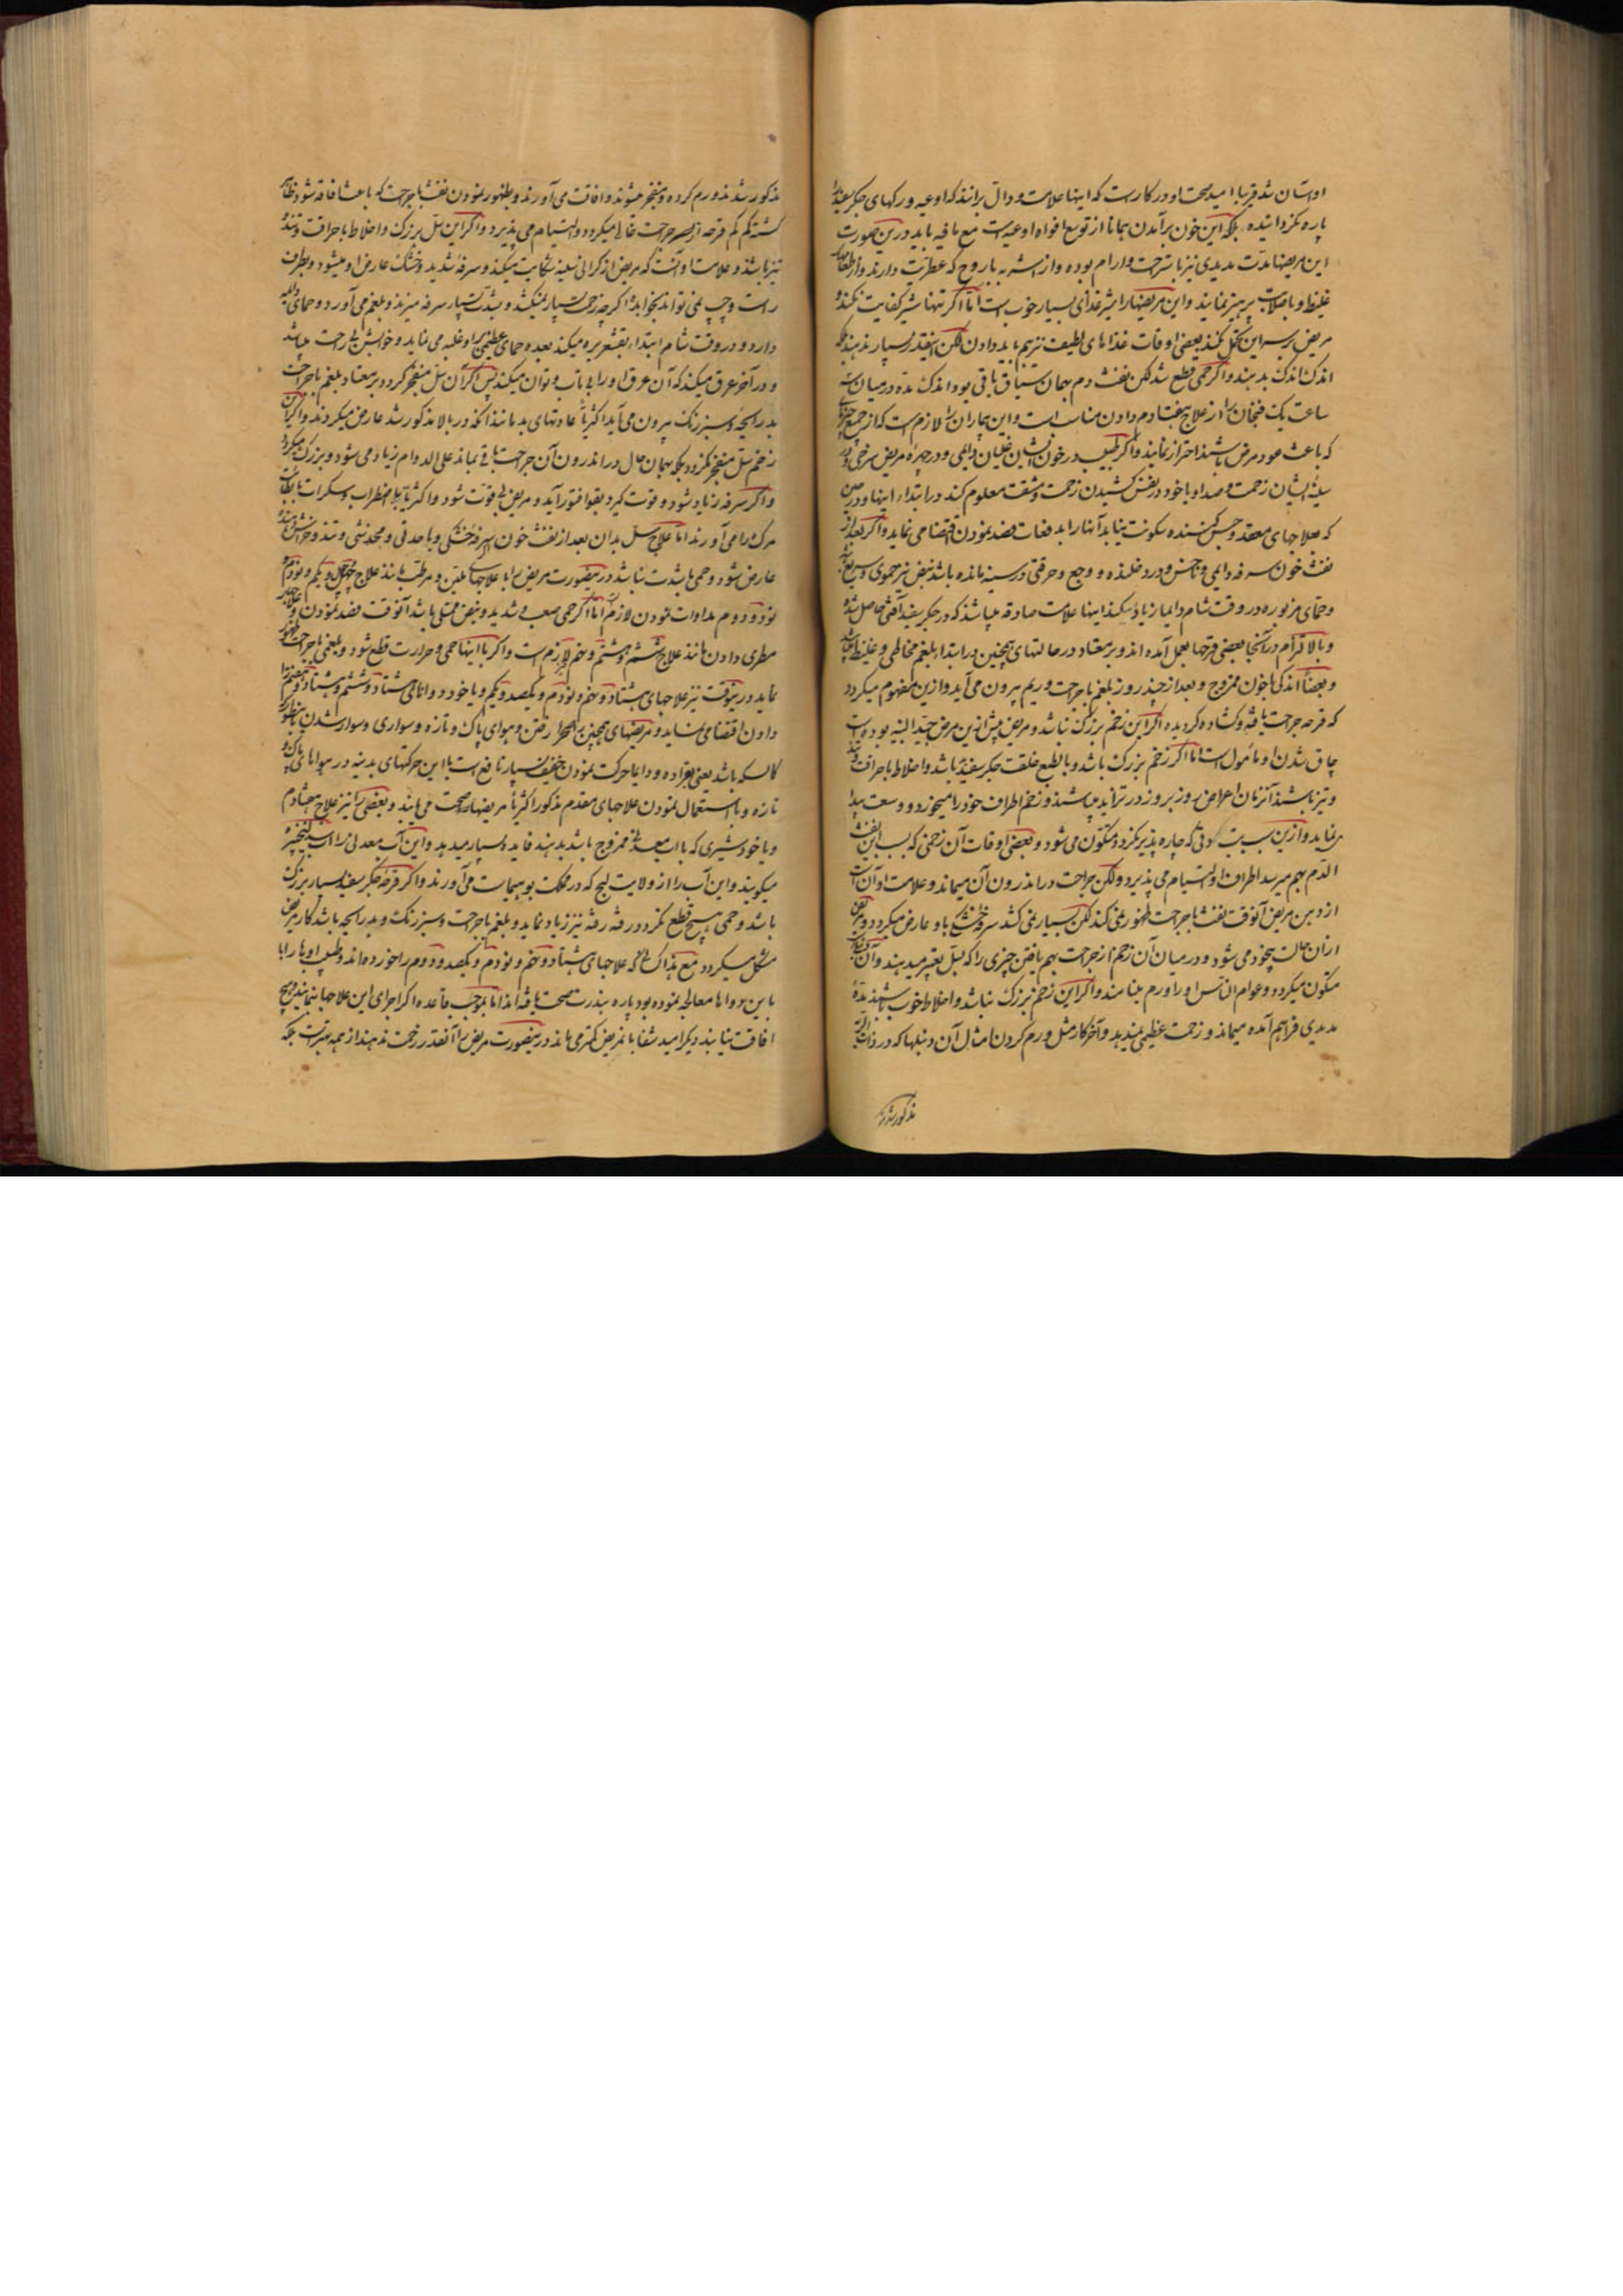 او آسان شد قریبا امید صحت او در کار است که اینها علامت و دال برانند که اوعیه و رکهای جکر سفید را
پاره نکردانیده بلکه این خون برآمدن همانا از توسع افواه اوعیه است مع ما فیه باید درین صورت
این مریضها مدت مدیدی نیز باستراحت و ارام بوده و از اشربه باروح که عطریت دارند و از طعامهای
غلیظ و با صلابت پرهیز نمایند و این مریضها را شیر غذای بسیار خوب است اما اکر تنها شیر کفایت نکند و
مریض بر سر این تحمل نکند بعضی اوقات غذاهای لطیفت نیز هم باید دادن لکن اینقدر بسیار ندهند بلکه
اندک اندک بدهند و اکر حمی قطع شد لکن نفث دم بهمان سیاق باقی بود اندک مده در میان سه
ساعت یک فنجان را از علاج هفتادم دادن مناسب است و این بیماران را لازم است که از جمیع چیزهای
که باعث عود مرض باشند احتراز نمایند و اکر طبیب در خون ایشان غلیان دایمی و در چهره مریض سرخی و در
سینه ایشان زحمت و صدا و یا خود در نفس کشیدن زحمت و مشقت معلوم کند در ابتداء اینها و در حین
که بعلاجهای معقد و حبس کننده سکونت نیابد آنها را بدفعات فصد نمودن اقتضا می نماید و اکر بعد از
نفث خون سرفه دایمی و ناخس و درد خلنده و وجع و حرقتی در سینه مانده باشد نبض نیز حموی و سریع باشد
و حمای مزبوره در وقت شام دایما زیاد میکند اینها علامت صادقه میباشند که در جکر سفید آفتی حاصل شده
و بالالتزام در آنجا بعضی قرحها بعمل آمده اند و بر معتاد در حالتهای همچنین در ابتداء بلغم مخاطی و غلیظ میباشد
و بعضا اندکی با خون ممزوج و بعد از چند روز بلغم با جراحت و ریم بیرون می آید و ازین مفهوم میکردد
که قرحه جراحت یافته و کشاده کردیده اکر این زخم بزرک نباشد و مریض پیش ازین مرض جید البنیه بوده است
چاق شدن او مامول است اما اکر زخم بزرک باشد و بالطبع خلقت جکر سفید باشد و اخلاط با حراقت و تند
و تیز باشند آنزمان اعراض روز بروز در تزاید میباشند و زخم اطراف خود را میخورد و وسعت پیدا
مینماید و ازین سبب دقی که چاره پذیر نکردد متکون می شود و بعضی اوقات آن زخمی که بسبب این نفث
الدم بهم میرسد اطراف او التیام می پذیرد و لکن جراحت در اندرون آن میماند و علامت او آن است
از دهن مریض آنوقت نفث با جراحت ظهور نمی کند لکن بسیار نمی کشد سرفه خشکی باو عارض میکردد و مریض
از آن حالت بیخود می شود و در میان آن زخم از جراحت بهم یافتن چیزی را که بسل تعبیر میدهند و آن
متکون میکردد و عوام الناس او را ورم مینامند و اکر این زخم بزرک نباشد و اخلاط خوب باشند مدة
مدیدی فراهم آمده میماند و زحمت عظیمی نمیدهد و آخر کار مثل ورم کردن امثال آن دنبلها که در ذات الریه
مذکور شدند
مذکور شدند ورم کرده و منفجر میشوند و افاقت می آورند و بظهور نمودن نفث با جراحت که باعث افاقه شود ظاهر
کشته کم کم قرحه از جراحت خالی میکردد و التیام می پذیرد و اکر این سل بزرک و اخلاط با حراقت و تند و
تیز باشند و علامت او آنست که مریض از کرانی سینه شکایت میکند و سرفه شدید و خشک عارض او میشود و بطرف
راست و چپ نمی تواند بخوابد و اکرچه زحمت بسیار نمیکشد و بشدت بسیار سرفه میزند و بلغم می آورد و حمای دایمه
دارد و در وقت شام ابتداء بقشعریره میکند بعده حمای عظیمی براو غلبه می نماید و خوابش بی راحت میباشد
و در آخر عرق میکند که آن عرق او را بی تاب و توان میکند پس اکر آن سل منفجر کردد بر معتاد بلغم با جراحت
بد رایحه و سبز رنک بیرون می آید اکثریا عادتهای بد مانند آنکه در بالا مذکور شد عارض میکردند و اکر این
زخم سل منفجر نکردد بلکه بهمان حال در اندرون آن جراحت باقی بماند علی الدوام زیاد می شود و بزرک میکردد
و اکر سرفه زیاد شود و قوت کیرد بقوا فتور آید و مریض بی قوت شود و اکثریا بلا اضطراب و سکرات
مرک را می آورند اما علاج سل بدان بعد از نفث خون سرفه خشکی و یا حدتی و مخدشی و تند و خراشنده
عارض شود و حمی باشدت نباشد درینصورت مریض را با علاجهای ملین و مرطب مانند علاج چهل و یکم و نودم و
نود و دوم مداوات نمودن لازم اما اکر حمی صعب و شدید و نبض ممتلی باشد آنوقت فصد نمودن و علاجهای
مطری دادن مانند علاج ششم و هشتم و پنجم لازم است و اکر با اینها حمی و حرارت قطع شود و بلغمی با جراحت ظهور
نماید درینوقت نیز علاجهای هشتاد و پنجم و نودم و یکصد و یکم و یا خود دوانالی هشتاد و ششم و هشتاد و هفتم را
دادن اقتضا می نماید و مریضهای همچنین را بصحرا رفتن و هوای پاک و تازه و سواری و سوار شدن
کالسکه باشد یعنی بعراده و دایما حرکت نمودن خفیف بسیار نافع است با این حرکتهای بدنیه در هواهای پاک و
تازه و با استعمال نمودن علاجهای مقدم مذکور اکثریا مریضها صحت می یابند و بعضی را نیز علاج هفتادم
و یا خود شیری که با آب معدنی ممزوج باشد بدهند فایده بسیار میدهد و این آب معدنی را آب سلیچر
میکویند و این آب را از ولایت لیج که در مملکت بوهیماست می آورند و اکر قرحه جکر سفید بسیار بزرک
باشد و حمی هیچ قطع نکردد رفته رفته نیز زیاد نماید و بلغم با جراحت و سبز رنک و بد رایحه باشد کار مریض
مشکل میکردد مع هذا کسانی که علاجهای هشتاد و پنجم و نودم و یکصد و دوم را خورده اند و طبیب اوها را با
با این دواها معالجه نموده بود پاره بندرت صحت یافته اند اما بموجب قاعده اکر اجرای این علاجها بنمایند و هیچ
افاقت نیابند دیکر امید شفا بانمریض کمتر می ماند درینصورت مریض را آنقدر زحمت ندهند از همه بهتر است بلکه